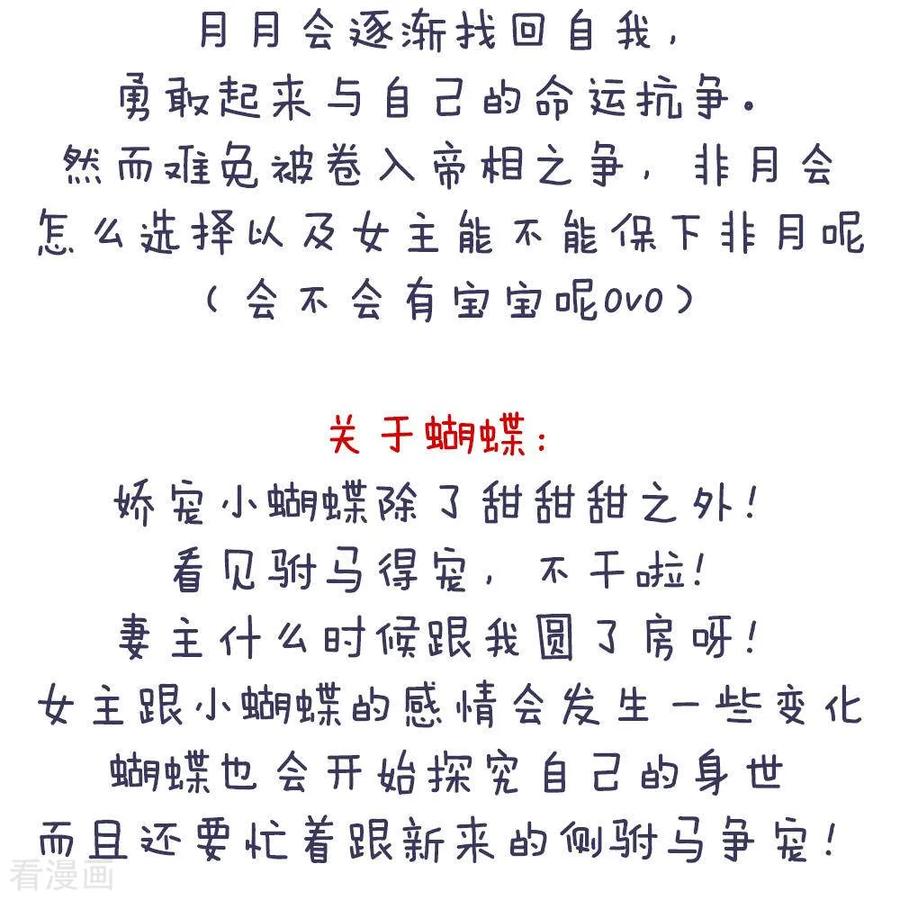 月月会逐渐找回自我，
勇敢起来与自己的命运抗争。
然而难免被卷入帝相之争，非月会
怎么选择以及女主能不能保下非月呢
（会不会有宝宝呢OVO）
关于蝴蝶：
娇宠小蝴蝶除了甜甜甜之外！
看见驸马得宠，不干啦！
妻主什么时候跟我圆了房呀！
女主跟小蝴蝶的感情会发生一些变化
蝴蝶也会开始探究自己的身世
而且还要忙着跟新来的侧驸马争宠！
看漫画